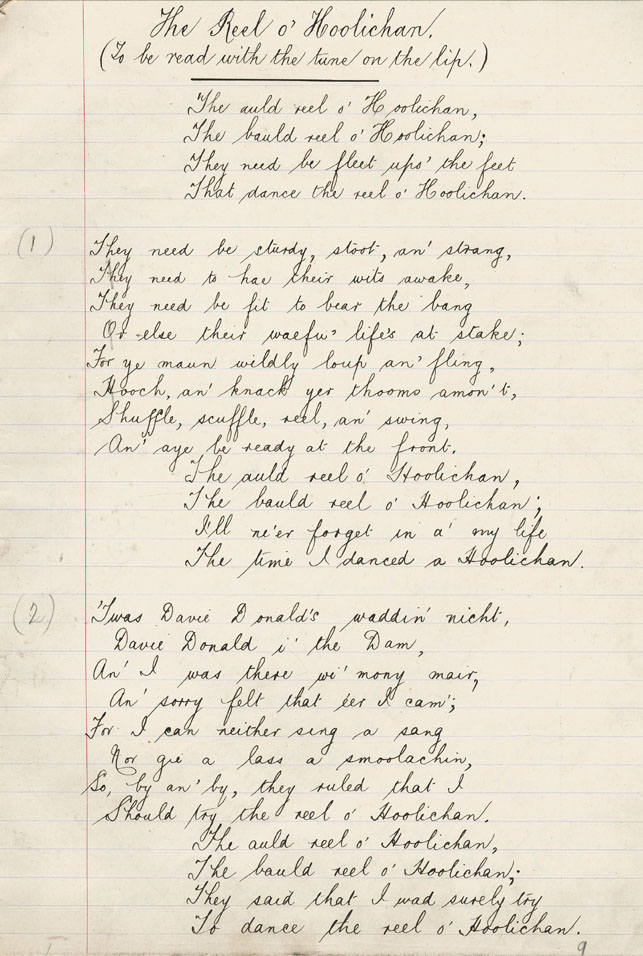 The Reel o' Hoolichan.
(To be read with the tune on the lip.)
The auld reel o' Hoolichan,
The bauld reel o' Hoolichan;
They need be fleet ups' the feet
That dance the reel o' Hoolichan.
(1)
They need be sturdy, stoot, an' strang,
They need to hae their wits awake,
They need be fit to bear the bang
Or else their waefu' life's at stake;
For ye maun wildly loup an' fling,
Hooch, an' knack yer thooms amon't,
Shuffle, scuffle, reel, an' swing,
An' aye be ready at the front.
The auld reel o' Hoolichan,
The bauld reel o' Hoolichan;
I'll ne'er forget in a' my life
The time I danced a Hoolichan.
(2)
'Twas Davie Donald's waddin' nicht,
Davie Donald i' the Dam,
An' I was there wi' mony mair,
An' sorry felt that e'er I cam';
For I can neither sing a sang
Nor gie a lass a smoolachin,
So, by an' by, they ruled that I
Should try the reel o' Hoolichan.
The auld reel o' Hoolichan,
The bauld reel o' Hoolichan;
They said that I wad surely try
To dance the reel o' Hoolichan.
9